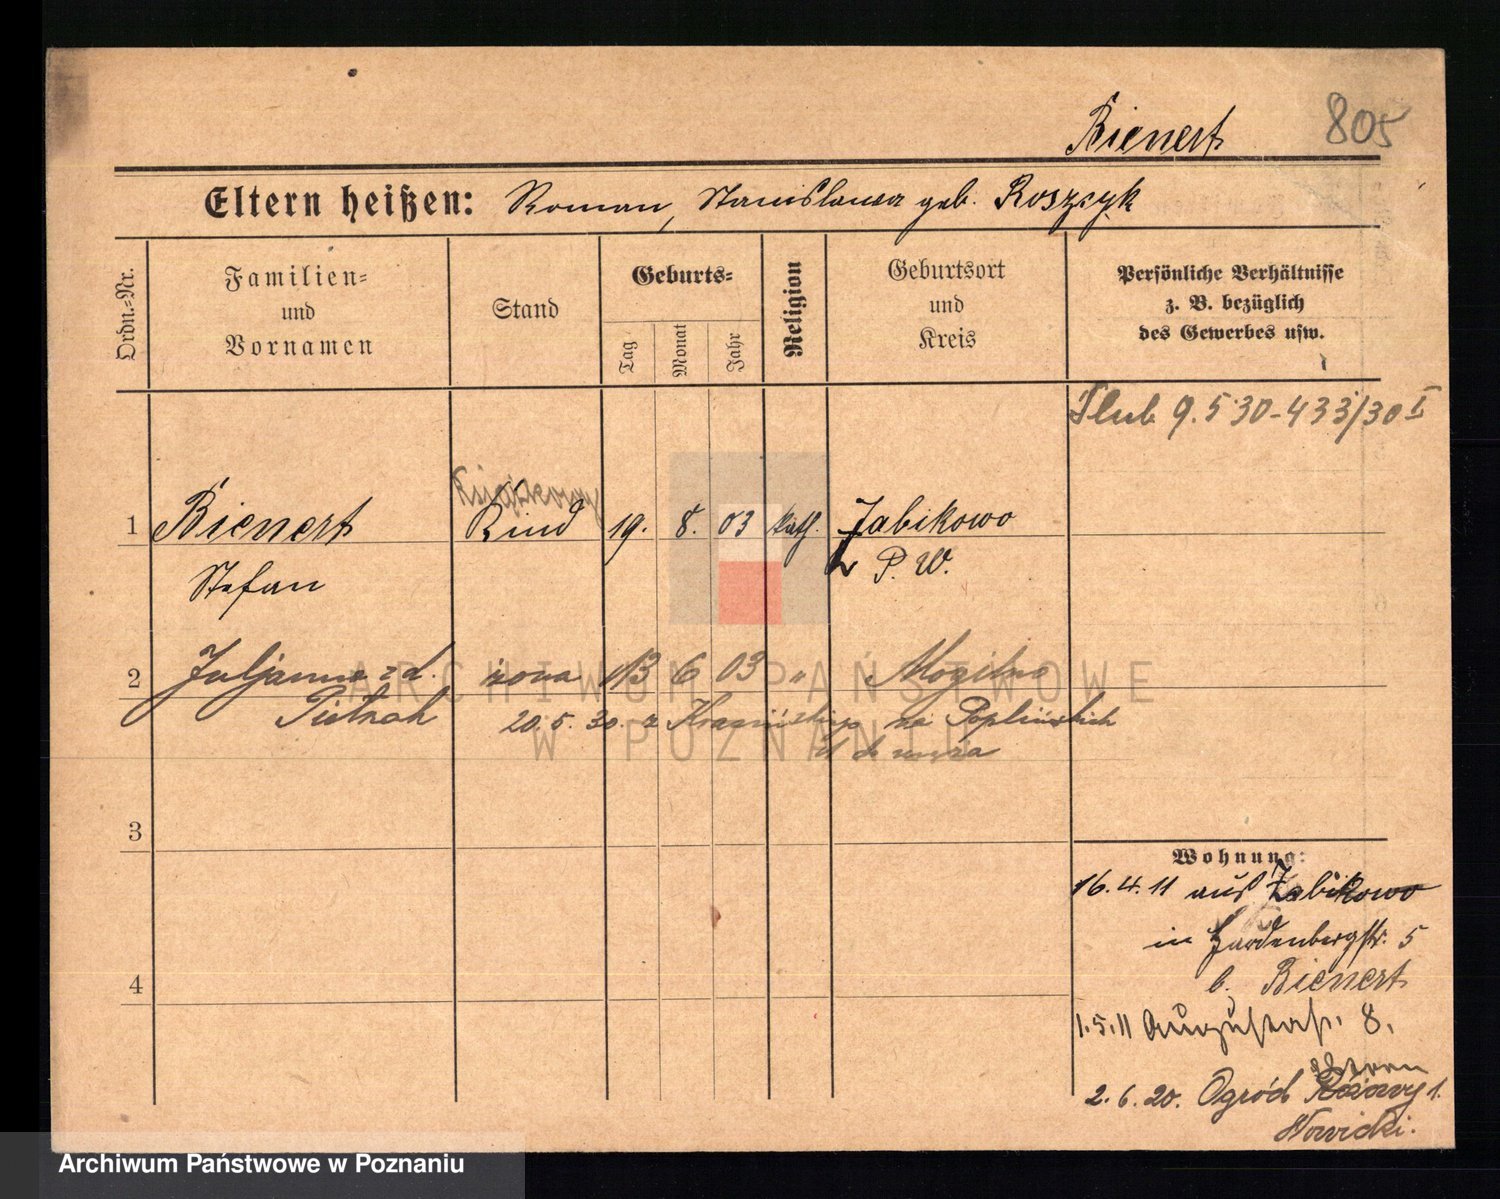 Bienert 805
Eltern heißen: Roman, Stanislawa geb. Roszcyk
Ordn.-Nr.
Familien-
und
Vornamen
Stand
Geburts-
Tag
Monat
Jahr
Religion
Geburtsort
und
Kreis
Persönliche Verhältnisse
z. B. bezüglich
des Gewerbes usw.
Ślub 9.5 30-433/30 I
Książkowy
1 Bienert Kind 19. 8. 03 kath. Żabikowo
Stefan P. W.
2 Juljanna z d. żona 13 6 03 " Mogilno
Pietrzak 20.5.30. z na Poplińskich
do męża
3
4
Wohnung:
16.4.11 aus Żabikowo
in Hardenbergstr. 5
b. Bienert
1.5.11 Augustastr. 8.
2.6.20. Ogród 1.
Nowicki.
ARCHIWUM PAŃSTWOWE
W POZNANIU
Archiwum Państwowe w Poznaniu